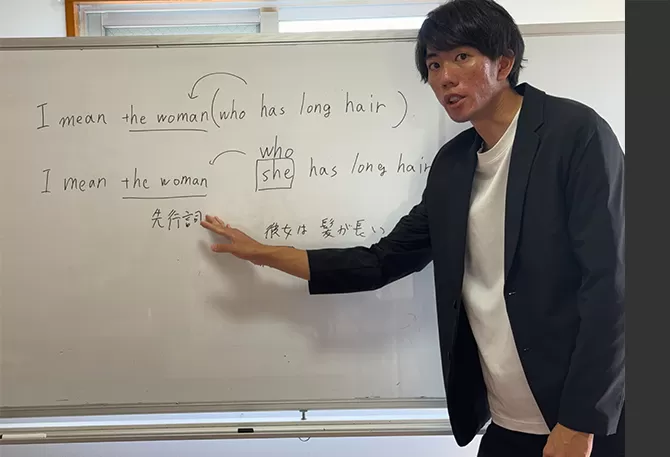 I mean the woman (who has long hair)
who
I mean the woman she has long hair
先行詞
彼女は 髪が長い